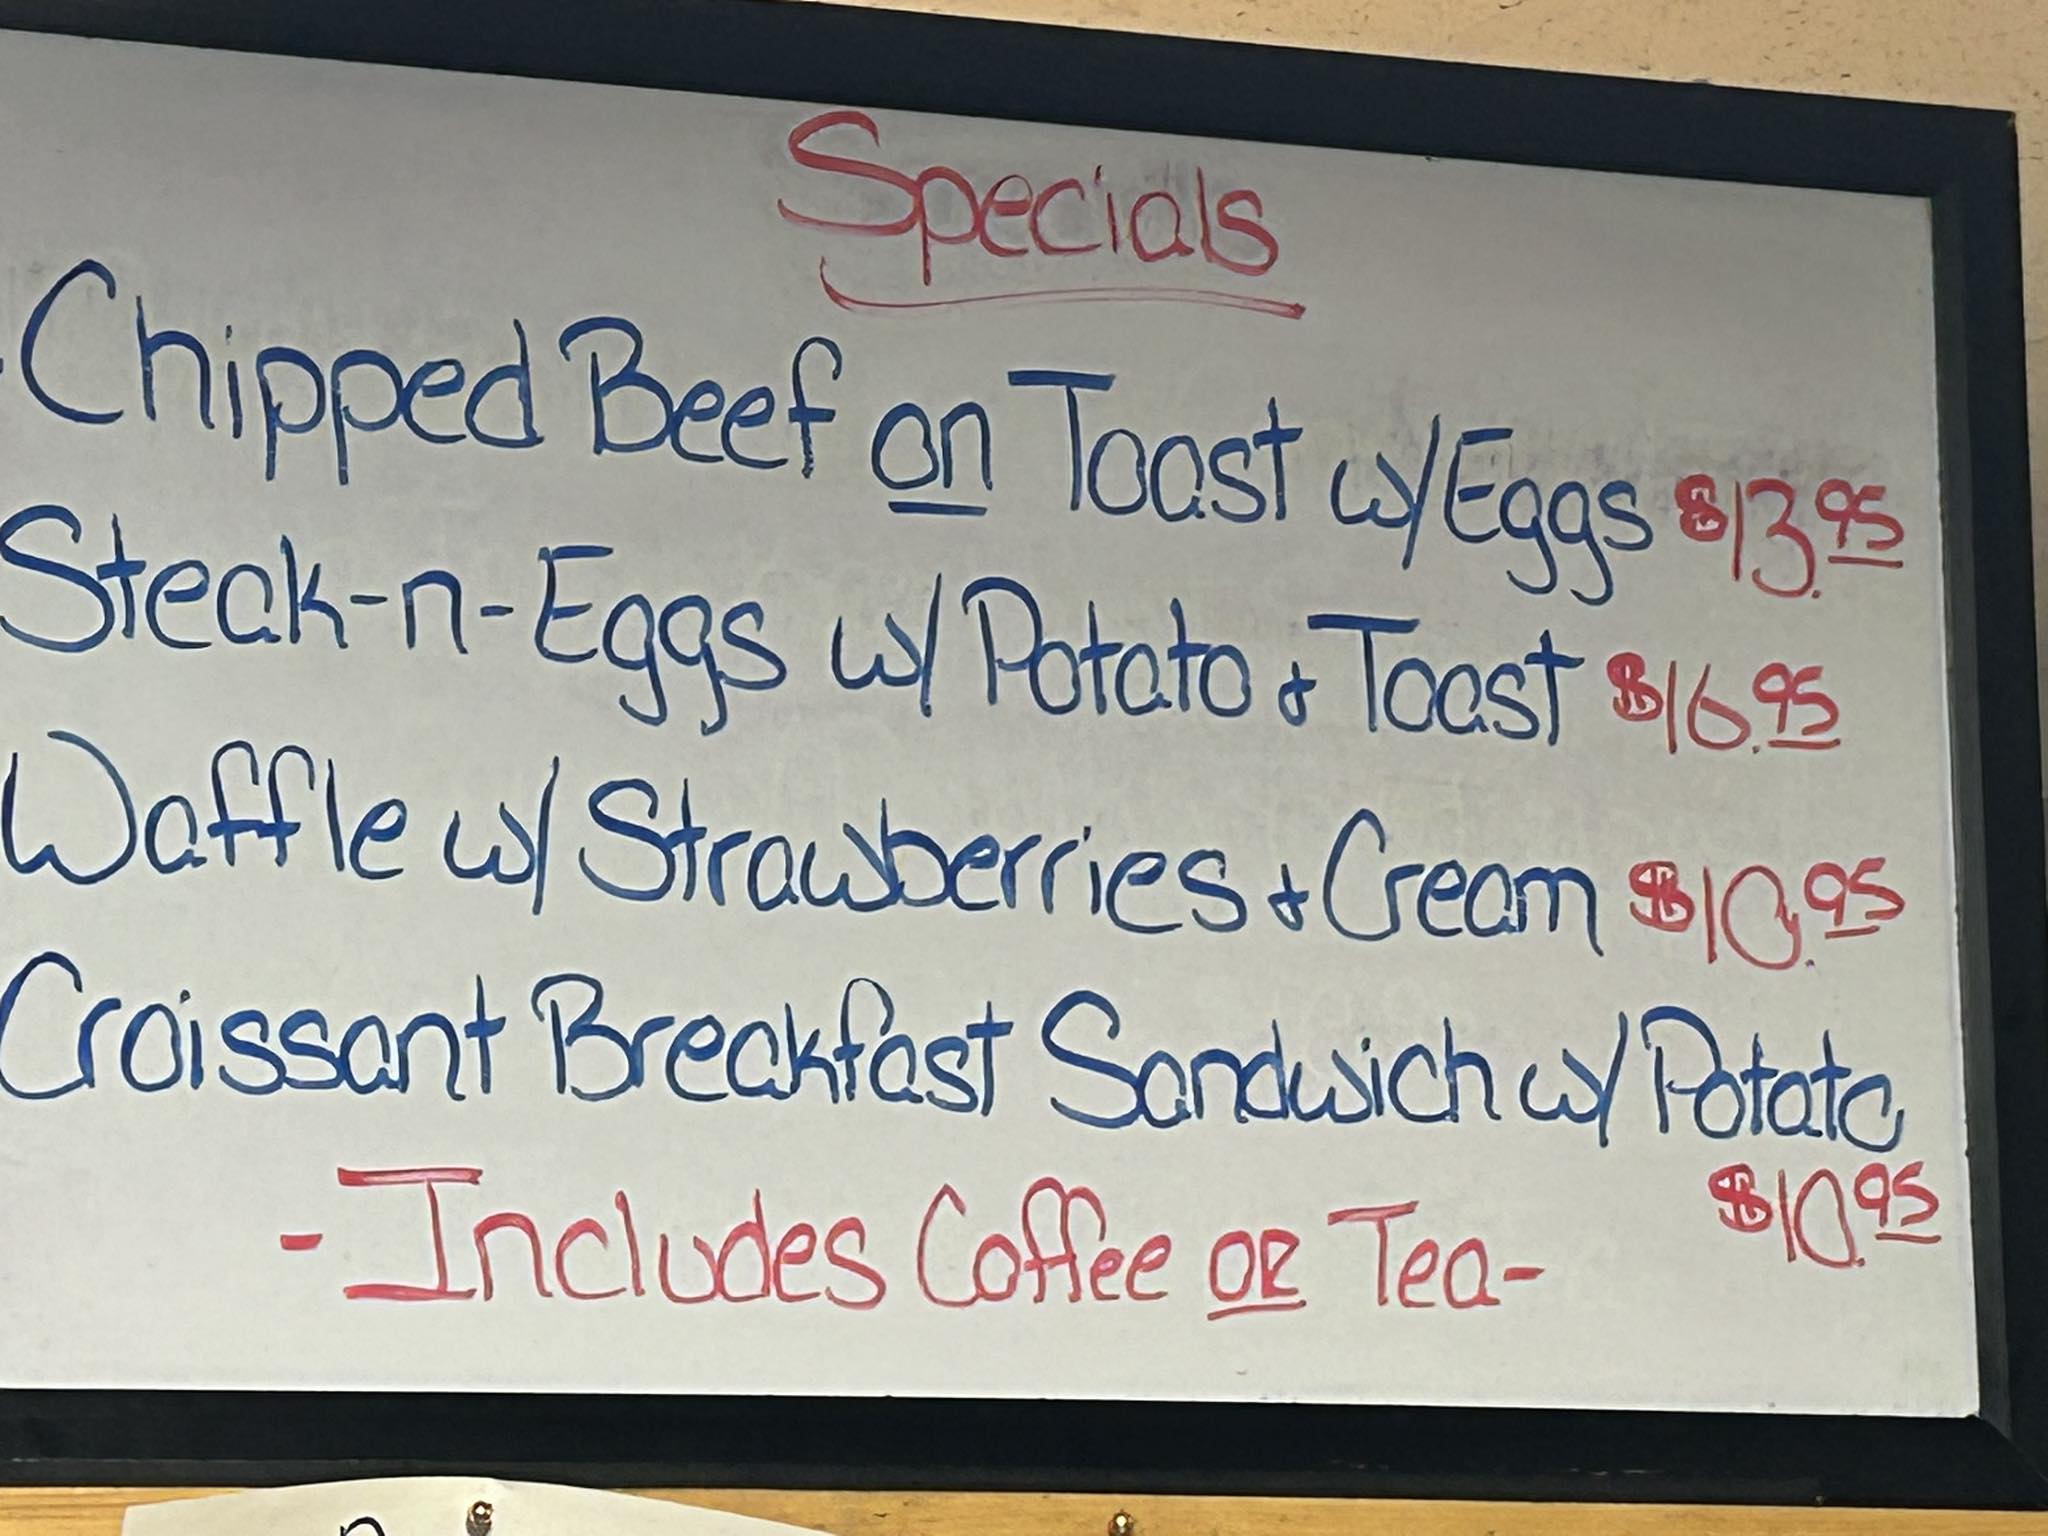 Specials
Chipped Beef on Toast w/Eggs $13.95
Steak-n-Eggs w/ Potato & Toast $16.95
Waffle w/ Strawberries & Cream $10.95
Croissant Breakfast Sandwich w/ Potato
$10.95
- Includes Coffee OR Tea-